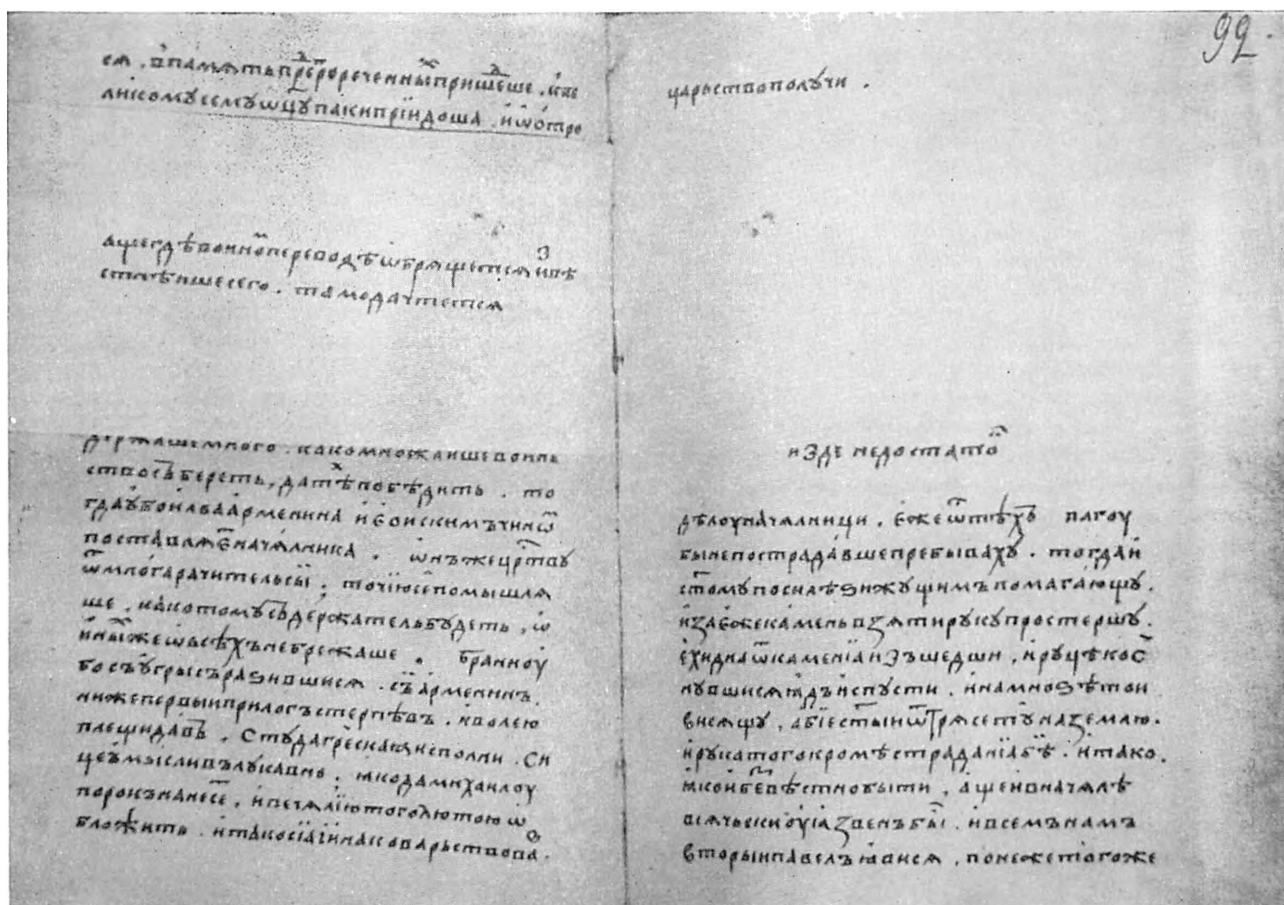 сѧ. в памѧть прⷣерⷪреченныⷯ пришеⷣше. к ве
ликому семꙋ ѿцꙋ паки прїидоша. и ѡ ѻтро
аще гдѣ в ономъ переводѣ ѡбрѧщетсѧ извѣ
стнѣише сего. тамо да чтетсѧ
держаше много. како множаише воинь
ство съберетъ, да тѣⷯ побѣдить. то
гда ꙋбо и лва арменина и еоискимъ чиноⷨ
поставлѧеⷮ началника. ѡнъ же црⷭтвꙋ
ѿ многа рачитель сыи, точїю се помышлѧ
ше, како томꙋ съдержатель бꙋдеть, ѡ
иныⷯ же ѡ всѣхъ небрежаше. бранноꙋ
бо съ ꙋгры съразившисѧ. съи арменинъ
ниже первыи прилогъ стерпѣвъ. и волею
плещи давъ. стꙋда греческаѧ исполни. си
це ꙋмысливъ лꙋкавно. ꙗко да михаилоу
порокъ нанесеⷮ, и печалїю того лютою ѡ
бложить. и тако сїа и инако варьствова.
99.
царьство полꙋчи.
и зде недостатоⷦ
дѣлоу началници. еже ѿ тѣхъ пагоу
бы не пострадавше пребывахꙋ. тогда и
ст҃омꙋ поснѣ зижꙋщимъ помагающꙋ.
и за еже камень взѧти рꙋкꙋ простершꙋ.
ехидна ѿ каменїа изъшедши, и рꙋцѣ кос
нꙋвшисѧ ꙗдъ испꙋсти. и на мнозѣ тои
висѧщꙋ, абїе ст҃ыи ѿтрѧсе тꙋ на землю.
и рꙋка того кромѣ страданїа бѣ. и тако.
ꙗкои безвѣстно быти, аще и в началѣ
всѧчьски оуїазвенъ бы. и всемъ намъ
вторыи павелъ ꙗвисѧ, понеже того же